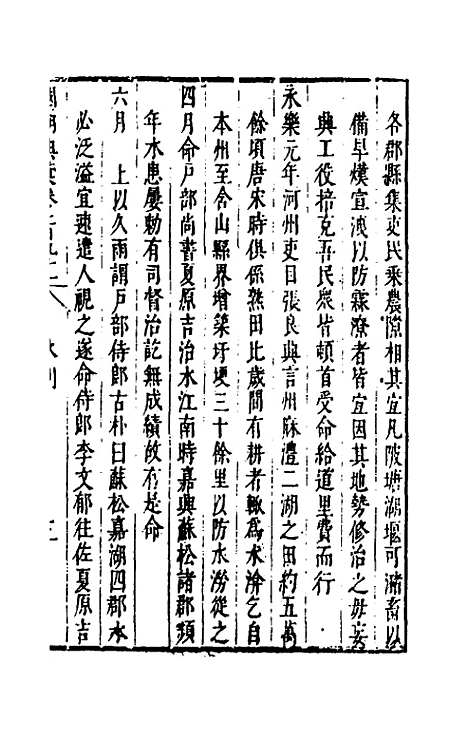 各郡縣集吏民乘農隙相其宜凡陂塘湖堰可瀦畜以
備旱熯宣洩以防霖潦者皆宜因其地勢修治之毋妄
興工役掊克吾民衆皆頓首受命給道里費而行
永樂元年河州吏目張良興言州麻澧二湖之田約五萬
餘頃唐宋時俱係熟田比歲間有耕者輙爲水渰乞自
本州至含山縣界增築圩埂三十餘里以防水澇從之
四月命戶部尚書夏原吉治水江南時嘉興蘇松諸郡頻
年水患屢勅有司督治訖無成績故有是命
六月 上以久雨謂戶部侍郎古朴曰蘇松嘉湖四郡水
必泛溢宜速遣人視之遂命侍郎李文郁往佐夏原吉
水利